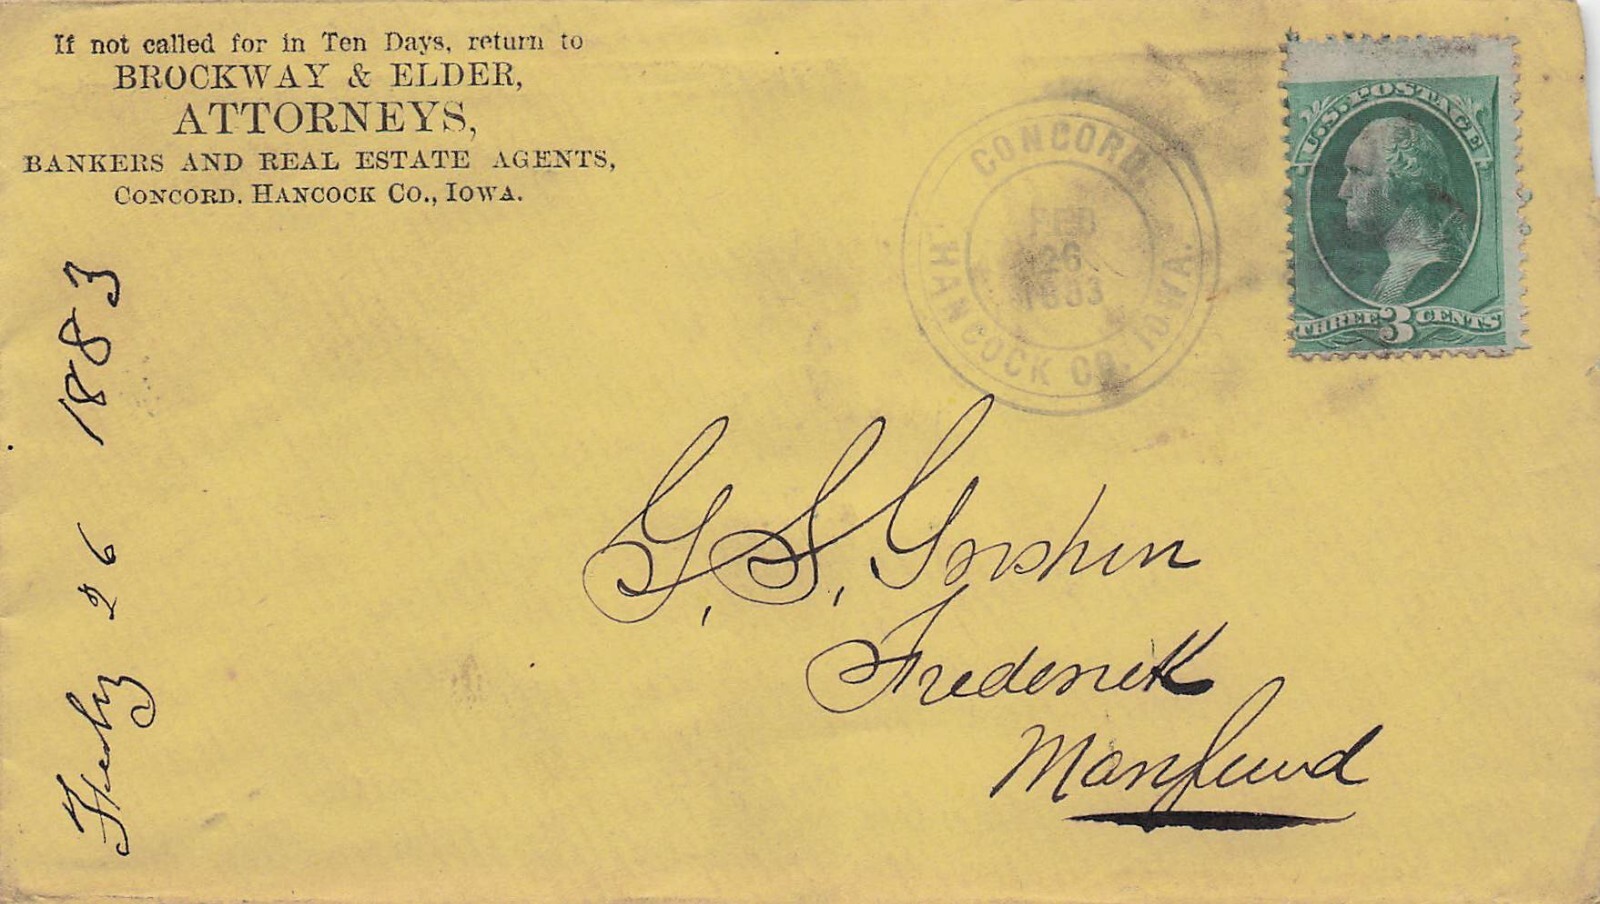 If not called for in Ten Days, return to
BROCKWAY & ELDER,
ATTORNEYS,
BANKERS AND REAL ESTATE AGENTS,
CONCORD. HANCOCK CO., IOWA.
CONCORD.
HANCOCK CO. IOWA.
FEB
26
1883
U.S. POSTAGE
THREE 3 CENTS
Feby 26 1883
G. S. Groshen
Frederick
Maryland